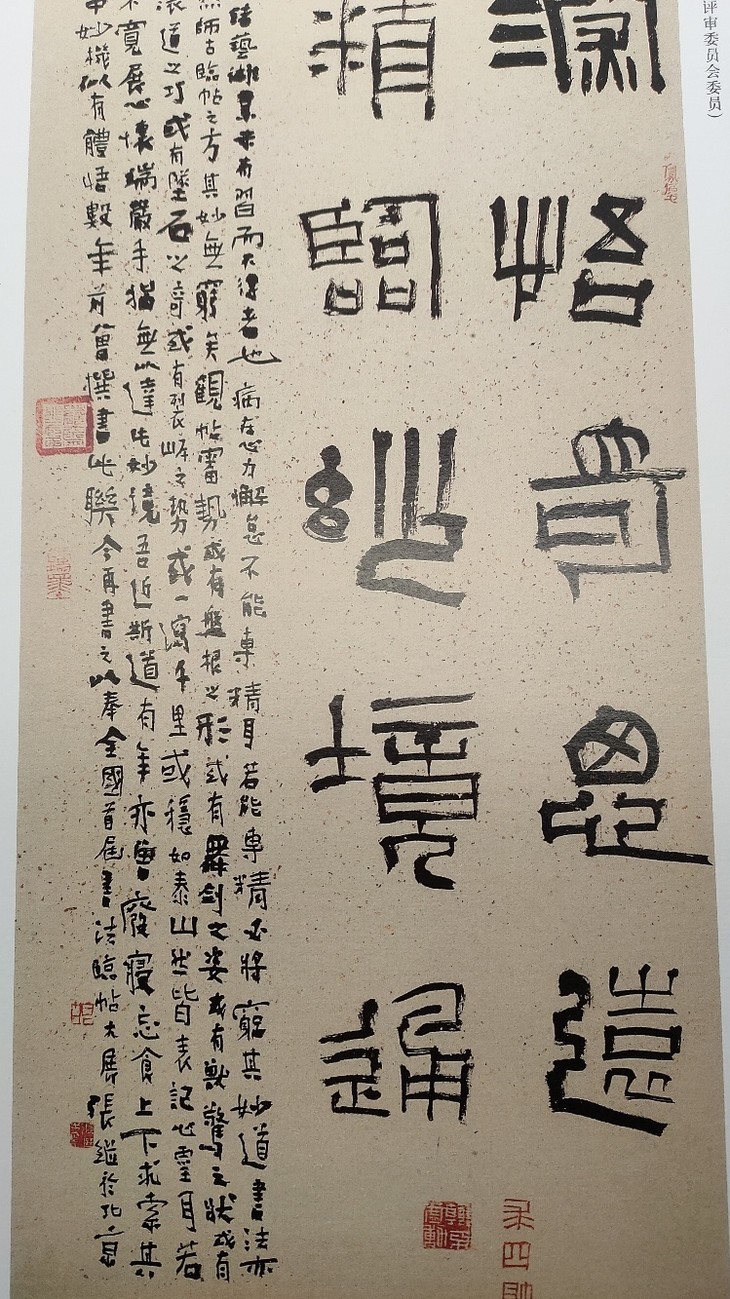 评审委员会委员）
悟思遠
精臨妙境通
藝未有習而不得者也病在心力懈怠不能專精耳若能專精必將窮其妙道書法亦
然師古臨帖之方其妙無窮矣觀帖審勢或有盤根之形或有舞劍之姿或有獸驚之狀或有
道之巧或有墜石之奇或有裂岸之勢或一瀉千里或穩如泰山然皆表記心靈耳若
不寬展心懷端嚴手猶無以達此妙境吾近斯道有年亦曾廢寢忘食上下求索其
中妙機似有體悟數年前曾撰書此聯今再書之以奉全國首屆書法臨帖大展張繼於北京